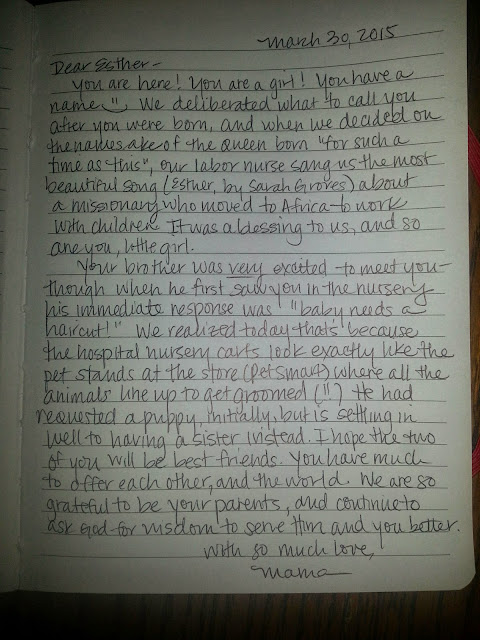 March 30, 2015
Dear Esther-
You are here! You are a girl! You have a
name ". We deliberated what to call you
after you were born, and when we decided on
the namesake of the queen born "for such a
time as this", our labor nurse sang us the most
beautiful song (Esther, by Sarah Groves) about
a missionary who moved to Africa to work
with children. It was a blessing to us, and so
are you, little girl.
Your brother was very excited to meet you-
though when he first saw you in the nursery
his immediate response was "baby needs a
haircut!" We realized today that's because
the hospital nursery carts look exactly like the
pet stands at the store (PetSmart) where all the
animals line up to get groomed (!!) He had
requested a puppy initially, but is settling in
well to having a sister instead. I hope the two
of you will be best friends. You have much
to offer each other, and the world. We are so
grateful to be your parents, and continue to
ask God for wisdom to serve Him and you better.
With so much love,
Mama